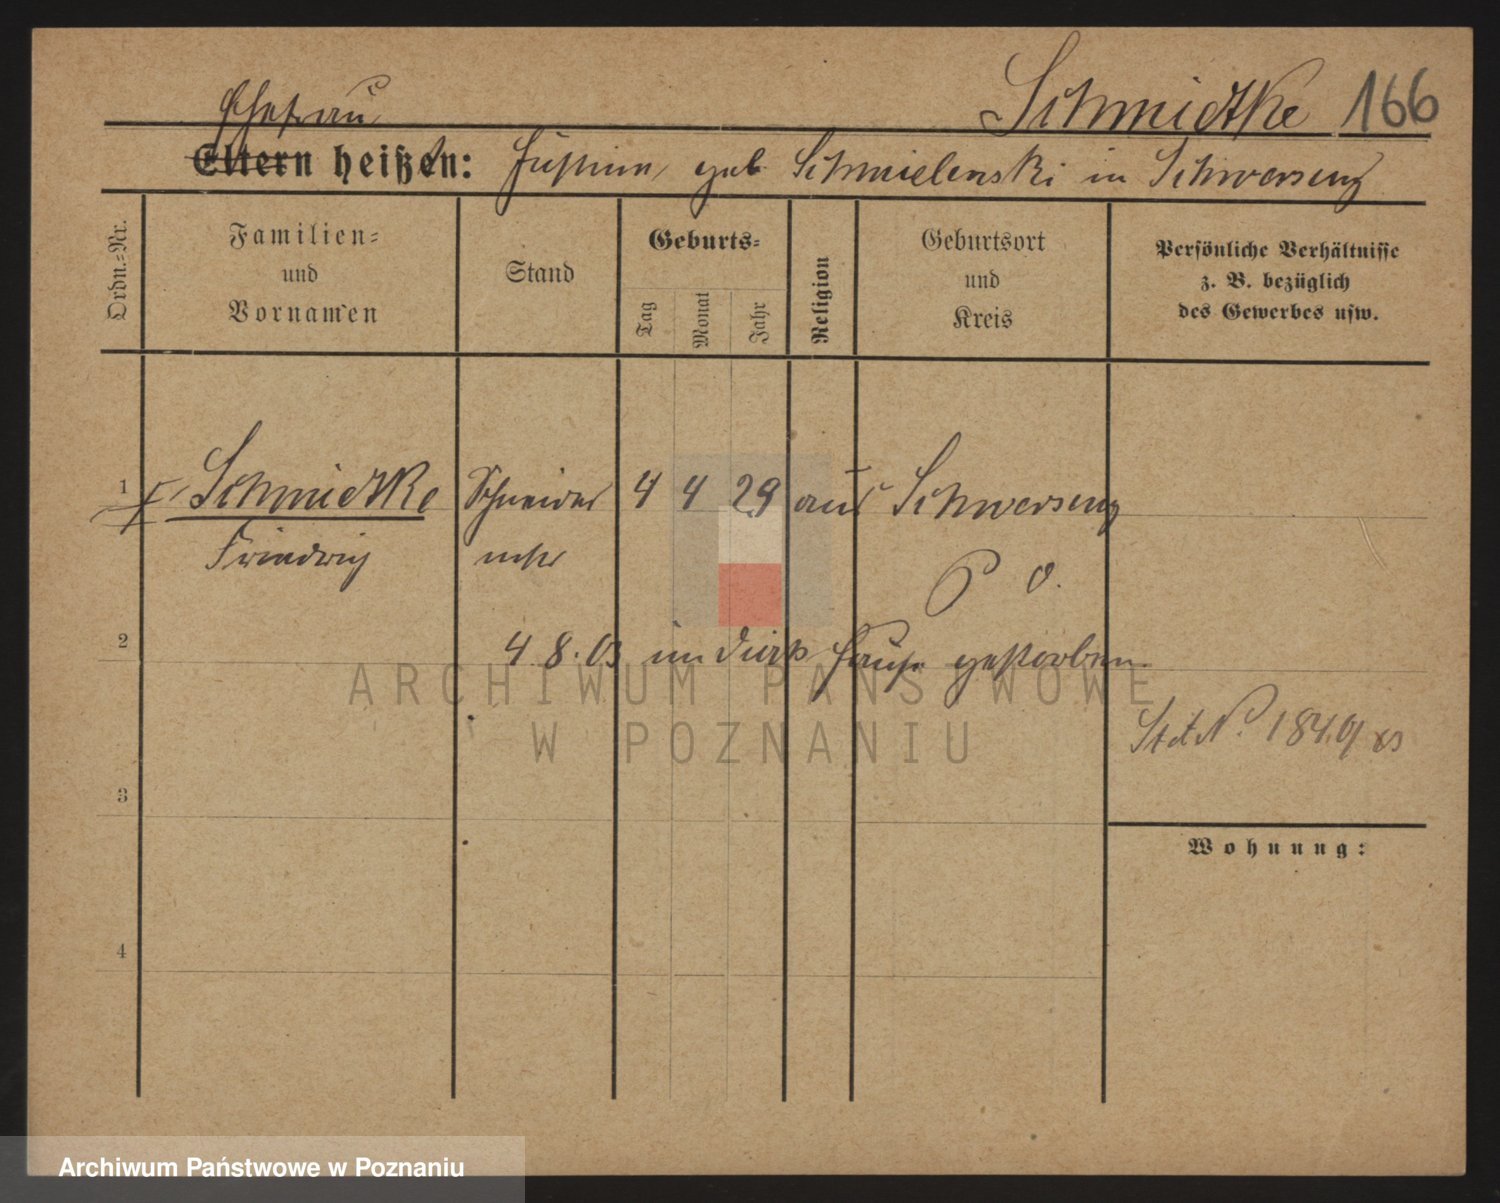 Schmidtke 166
Ehefrau
Eltern heißen: Justine, geb. Schmielenski in Schwersenz
Ordn.-Nr.
Familien-
und
Vornamen
Stand
Geburts-
Tag
Monat
Jahr
Religion
Geburtsort
und
Kreis
Persönliche Verhältnisse
z. B. bezüglich
des Gewerbes usw.
1 Schmidtke Schneider 4 4 29 aus Schwersenz
Friedrich mstr P O.
2
4.8.03 im Hause gestorben.
ARCHIWUM PAŃSTWOWE
W POZNANIU
3
Wohnung:
4
Archiwum Państwowe w Poznaniu